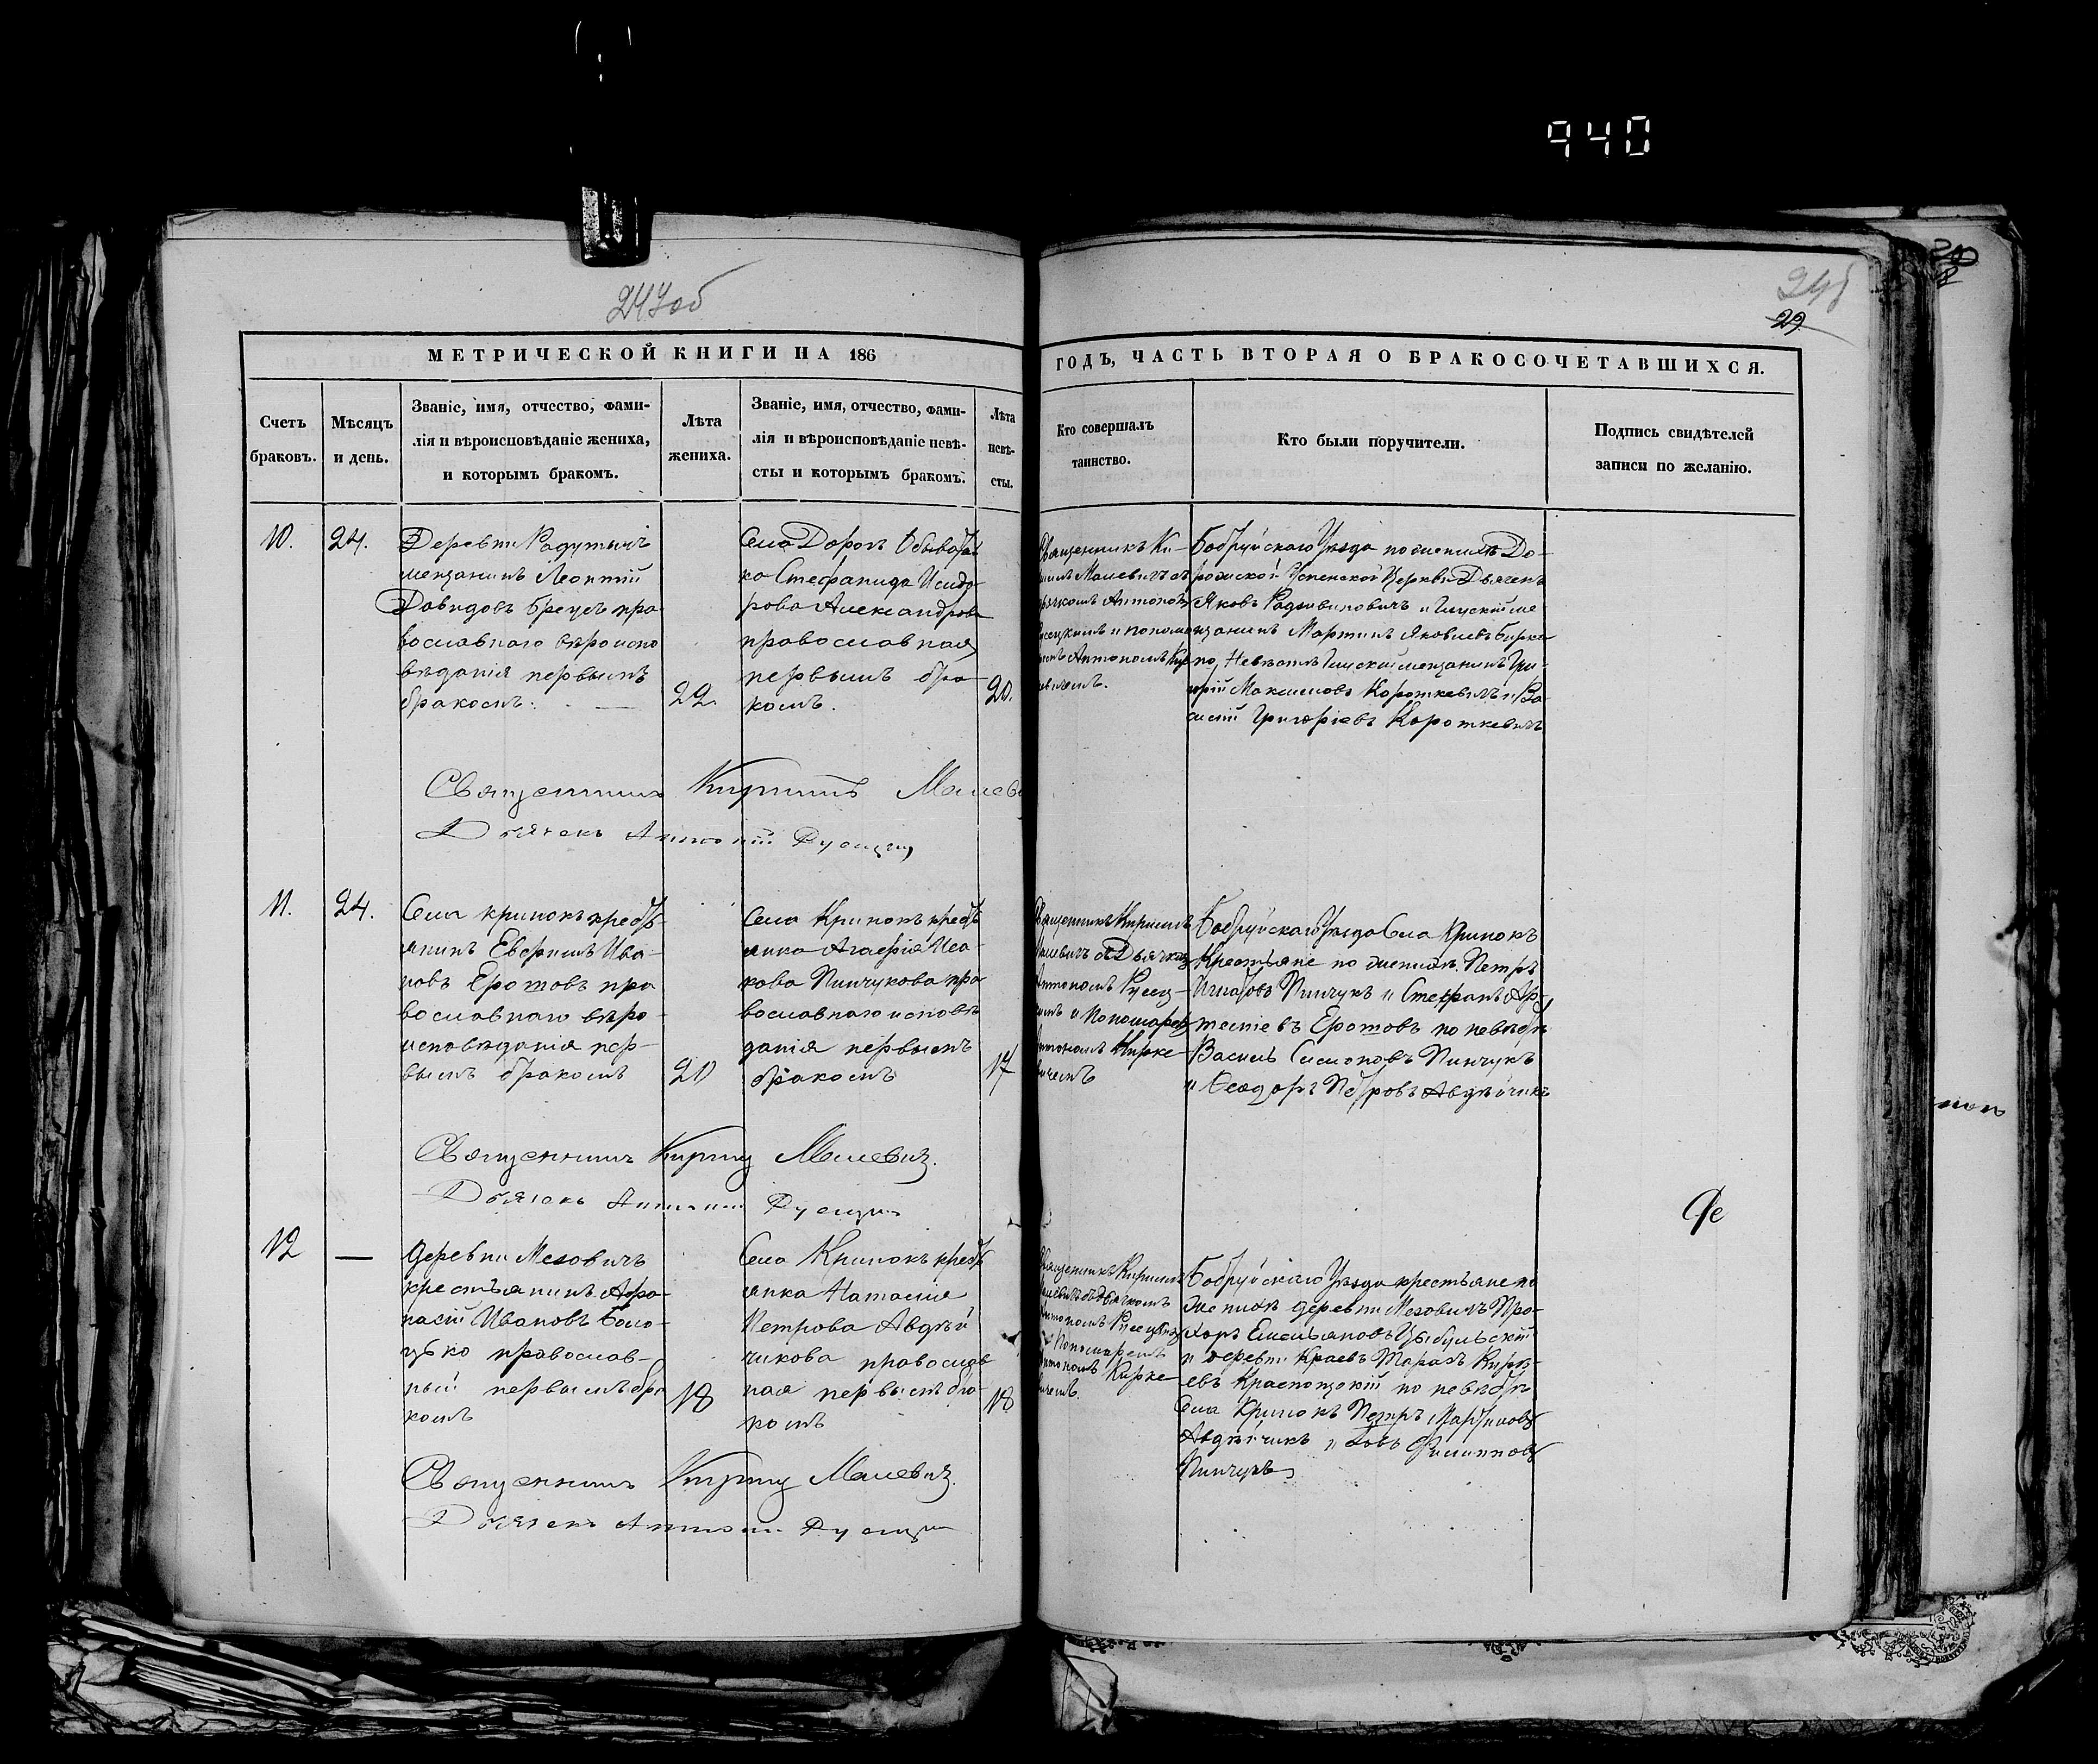 940
247об
248
29
МЕТРИЧЕСКОЙ КНИГИ НА 186
ГОДЪ, ЧАСТЬ ВТОРАЯ О БРАКОСОЧЕТАВШИХСЯ.
Счетъ
браковъ.
Мѣсяцъ
и день.
Званіе, имя, отчество, фами-
лія и вѣроисповѣданіе жениха,
и которымъ бракомъ.
Лѣта
жениха.
Званіе, имя, отчество, фами-
лія и вѣроисповѣданіе невѣ-
сты и которымъ бракомъ.
Лѣта
невѣ-
сты.
Кто совершалъ
таинство.
Кто были поручители.
Подпись свидѣтелей
записи по желанію.
10.
24.
Деревни Радутичъ
мещанинъ Леонтій
Давидовъ Брецъ пра
вославнаго вѣроиспо
вѣданія первымъ
бракомъ.
22.
Села Дорогъ Обывател
ка Стефанида Исидо
рова Александрова
православная
первымъ бра
комъ.
20.
Священникъ Ки-
Малевичъ съ
Дьячкомъ Антоніемъ
и понома
Антономъ
Бобруйскаго Уѣзда по женихѣ До-
рожской Успенской Церкви Дьячекъ
Яковъ Радзивиловичъ и Глускій ме
щанинъ Мартинъ Яковлевъ Бирка
по Невѣстѣ Глускій мещанинъ Гри-
горій Максимовъ Короткевичъ и Ва-
силій Григоріевъ Короткевичъ
Священникъ Кириллъ Малеви
Дьячекъ Антоній Русецкій
11.
24.
Села Кринокъ крестъ
янинъ Евфимъ Ива-
новъ Еротовъ пра
вославнаго вѣро-
исповѣданія пер-
вымъ бракомъ
20
Села Кринокъ крестъ
янка Агафія Иса-
кова Пинчукова пра
вославнаго исповѣ
данія первымъ
бракомъ
17
Священникъ Кириллъ
Малевичъ съ Дьячкомъ
Антономъ Русец-
кимъ и Пономаремъ
Антономъ Кирке
вичемъ
Бобруйскаго Уѣзда Села Кринокъ
Крестьяне по женихѣ Петръ
Игнатовъ Пинчукъ и Стефанъ Ар-
темьевъ Еротовъ по невѣстѣ
Василь Симоновъ Пинчукъ
и Ѳеодоръ Петровъ Авдѣйчикъ
Священникъ Кириллъ Малевичъ.
Дьячекъ Антоній Русецкій
12
—
Деревни Мезовичъ
крестьянинъ Афа-
насій Ивановъ Боло-
цько православ-
ный первымъ бра
комъ
18
Села Кринокъ крестъ
янка Наталія
Петрова Авдѣй
чикова православ
ная первымъ бра-
комъ
18
Священникъ Кириллъ
Малевичъ съ Дьячкомъ
Антономъ Русецкимъ
и Пономаремъ
Антономъ Кирке
вичемъ.
Бобруйскаго Уѣзда крестьяне по
женихѣ деревни Мезовичъ Про-
хоръ Емельяновъ Цыбульскій
и деревни Краевъ Тарасъ
евъ по невѣстѣ
Села Кринокъ Петръ Мартиновъ
Авдѣйчикъ и Филипповъ
Пинчукъ
Священникъ Кириллъ Малевичъ.
Дьячекъ Антоній Русецкій